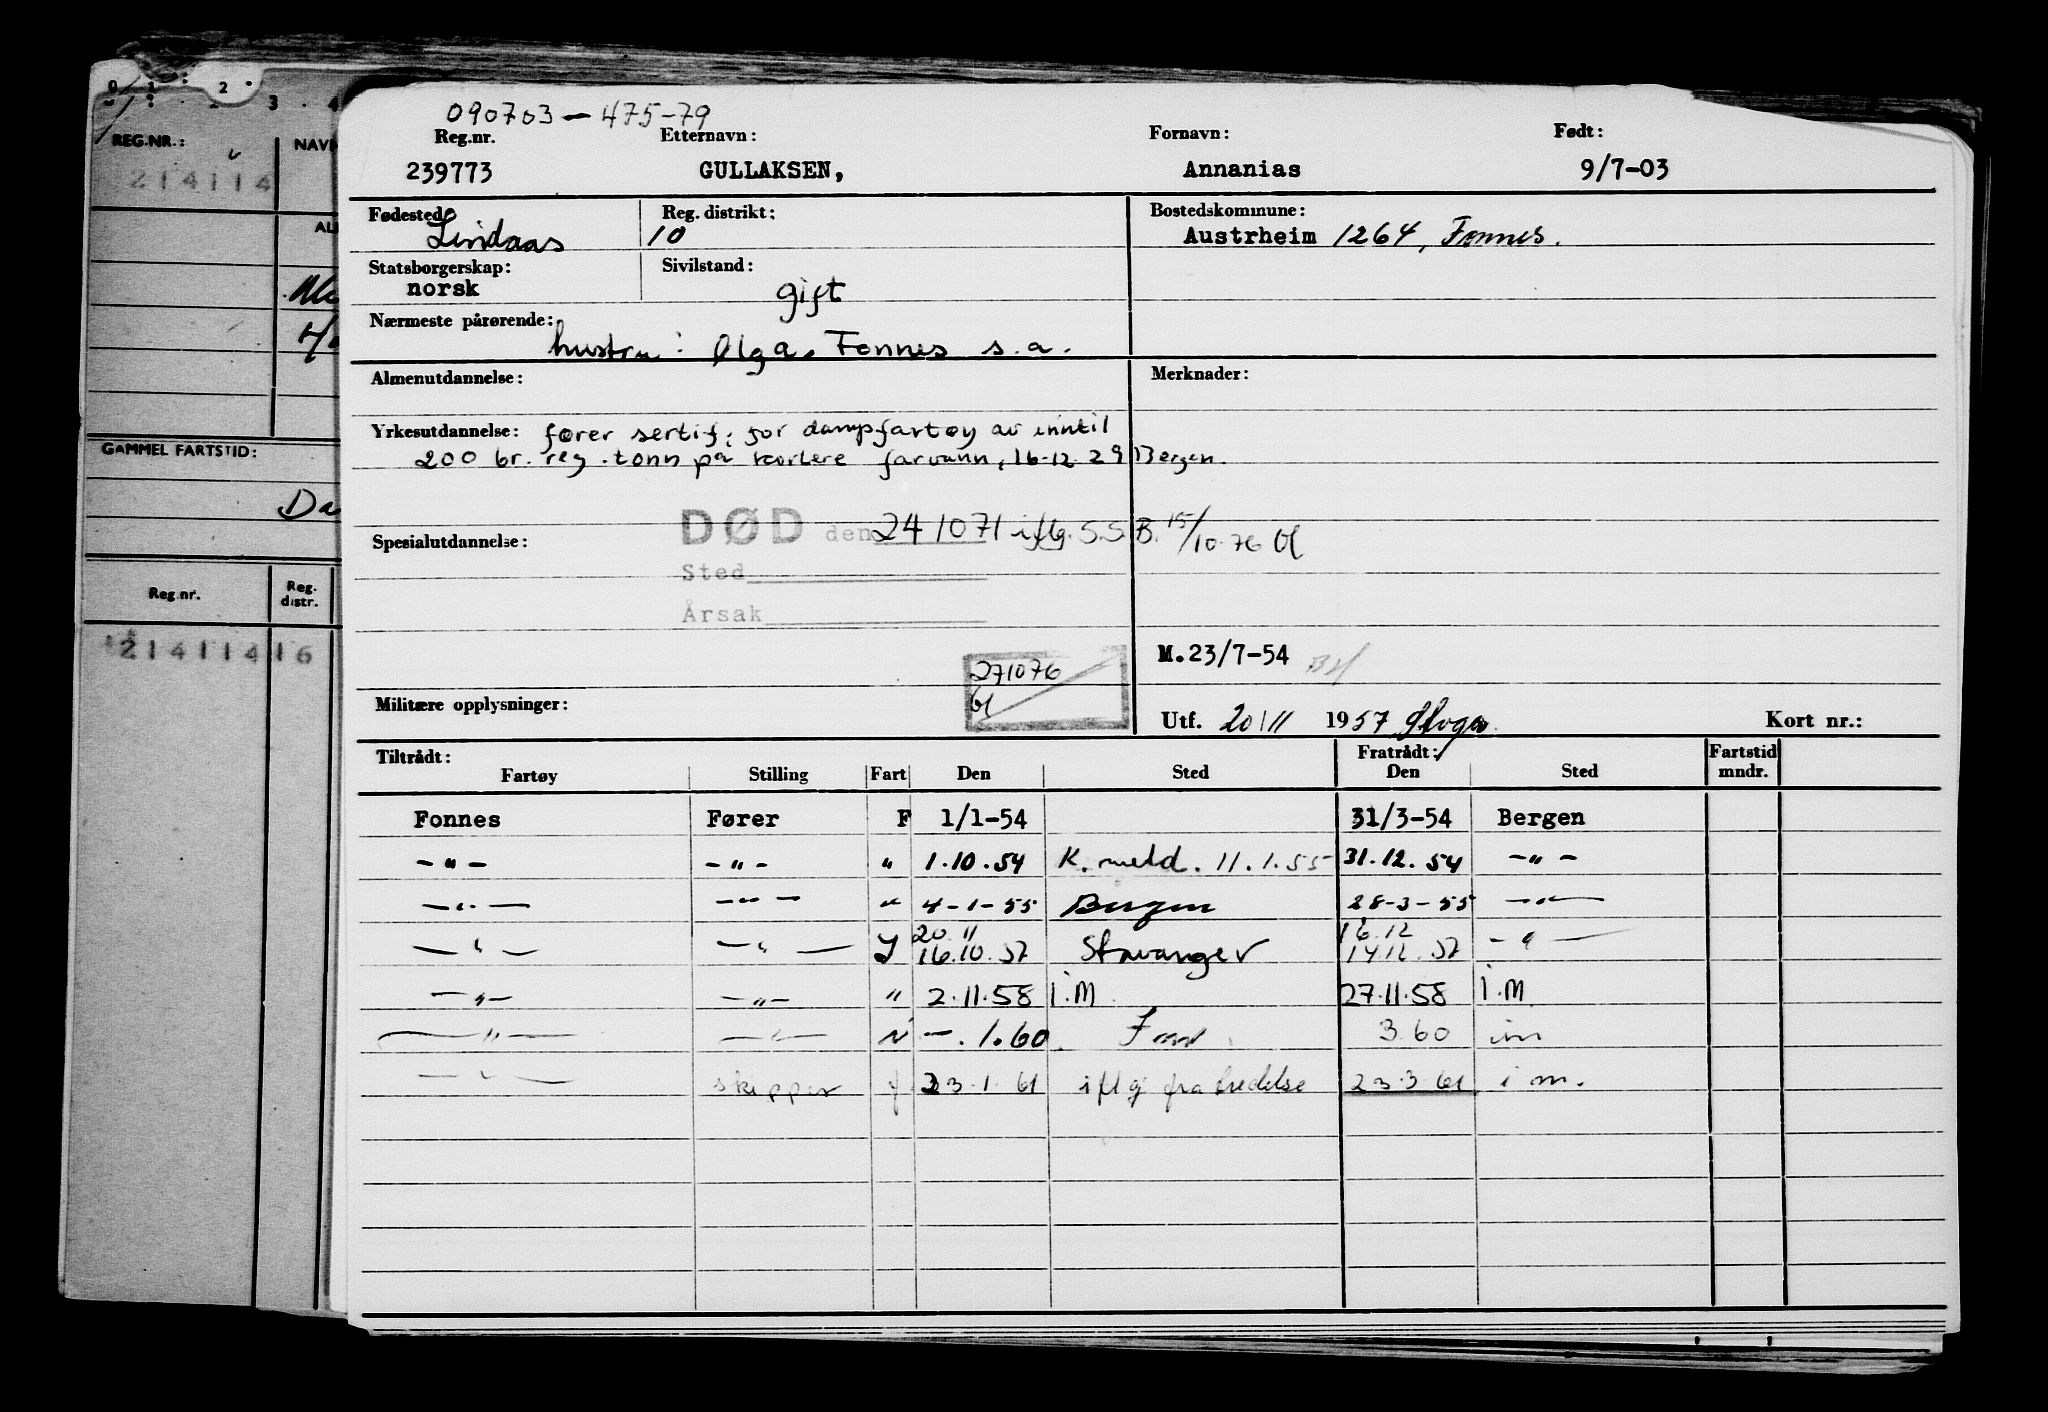 0 1 2
3 4
REG.NR.:
NAVN
214114
GAMMEL FARTSTID:
Reg.nr.
Reg. distr.
214114 16
090703-475-79
Reg.nr. Etternavn: Fornavn: Født:
239773 GULLAKSEN, Annanias 9/7-03
Fødested: Reg. distrikt: Bostedskommune:
Lindaas 10 Austrheim 1264, Fonnes.
Statsborgerskap: Sivilstand:
norsk gift
Nærmeste pårørende:
hustru: Olga, Fonnes s.a.
Almenutdannelse: Merknader:
Yrkesutdannelse: fører sertif. for dampfartøy av inntil
200 br. reg. tonn på kortere farvann, 16-12-29 Bergen.
DØD den 241071 iflg. S.S.B. 15/10-76
Spesialutdannelse:
Sted
Årsak
M.23/7-54
271076
Militære opplysninger:
Utf. 20/11 1957 Kort nr.:
Tiltrådt: Fratrådt: Fartstid
Fartøy Stilling Fart Den Sted Den Sted mndr.
Fonnes Fører F 1/1-54 31/3-54 Bergen
-"- -"- " 1.10.54 K. meld. 11.1.55 31.12.54 -"-
-"- -"- " 4-1-55 Bergen 28-3-55 -"-
20 11 16.12
-"- -"- 16.10.57 Stavanger 1412.57 -"-
-"- -"- " 2.11.58 i.M. 27.11.58 i.M.
-"- -"- -.1.60 3.60 im
-"- skipper f 23.1.61 iflg fratredelse 23.3.61 i m.